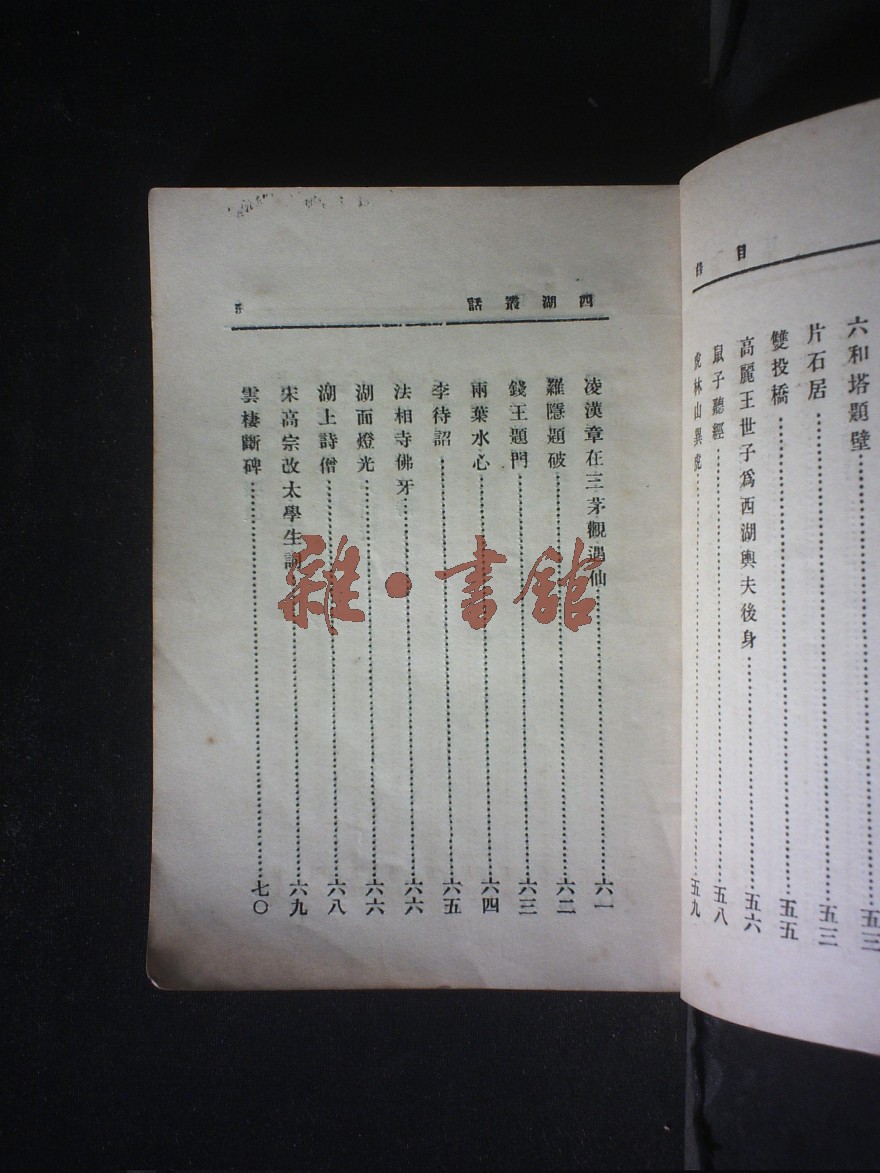 目錄
六和塔題壁……五三
片石居……五三
雙投橋……五五
高麗王世子爲西湖輿夫後身……五六
鼠子聽經……五八
虎林山異虎……五九
西湖叢話
凌漢章在三茅觀遇仙……六一
羅隱題破……六二
錢王題門……六三
兩葉水心……六四
李待詔……六五
法相寺佛牙……六六
湖面燈光……六六
湖上詩僧……六八
宋高宗改太學生詞……六九
雲棲斷碑……七〇
雜·書館